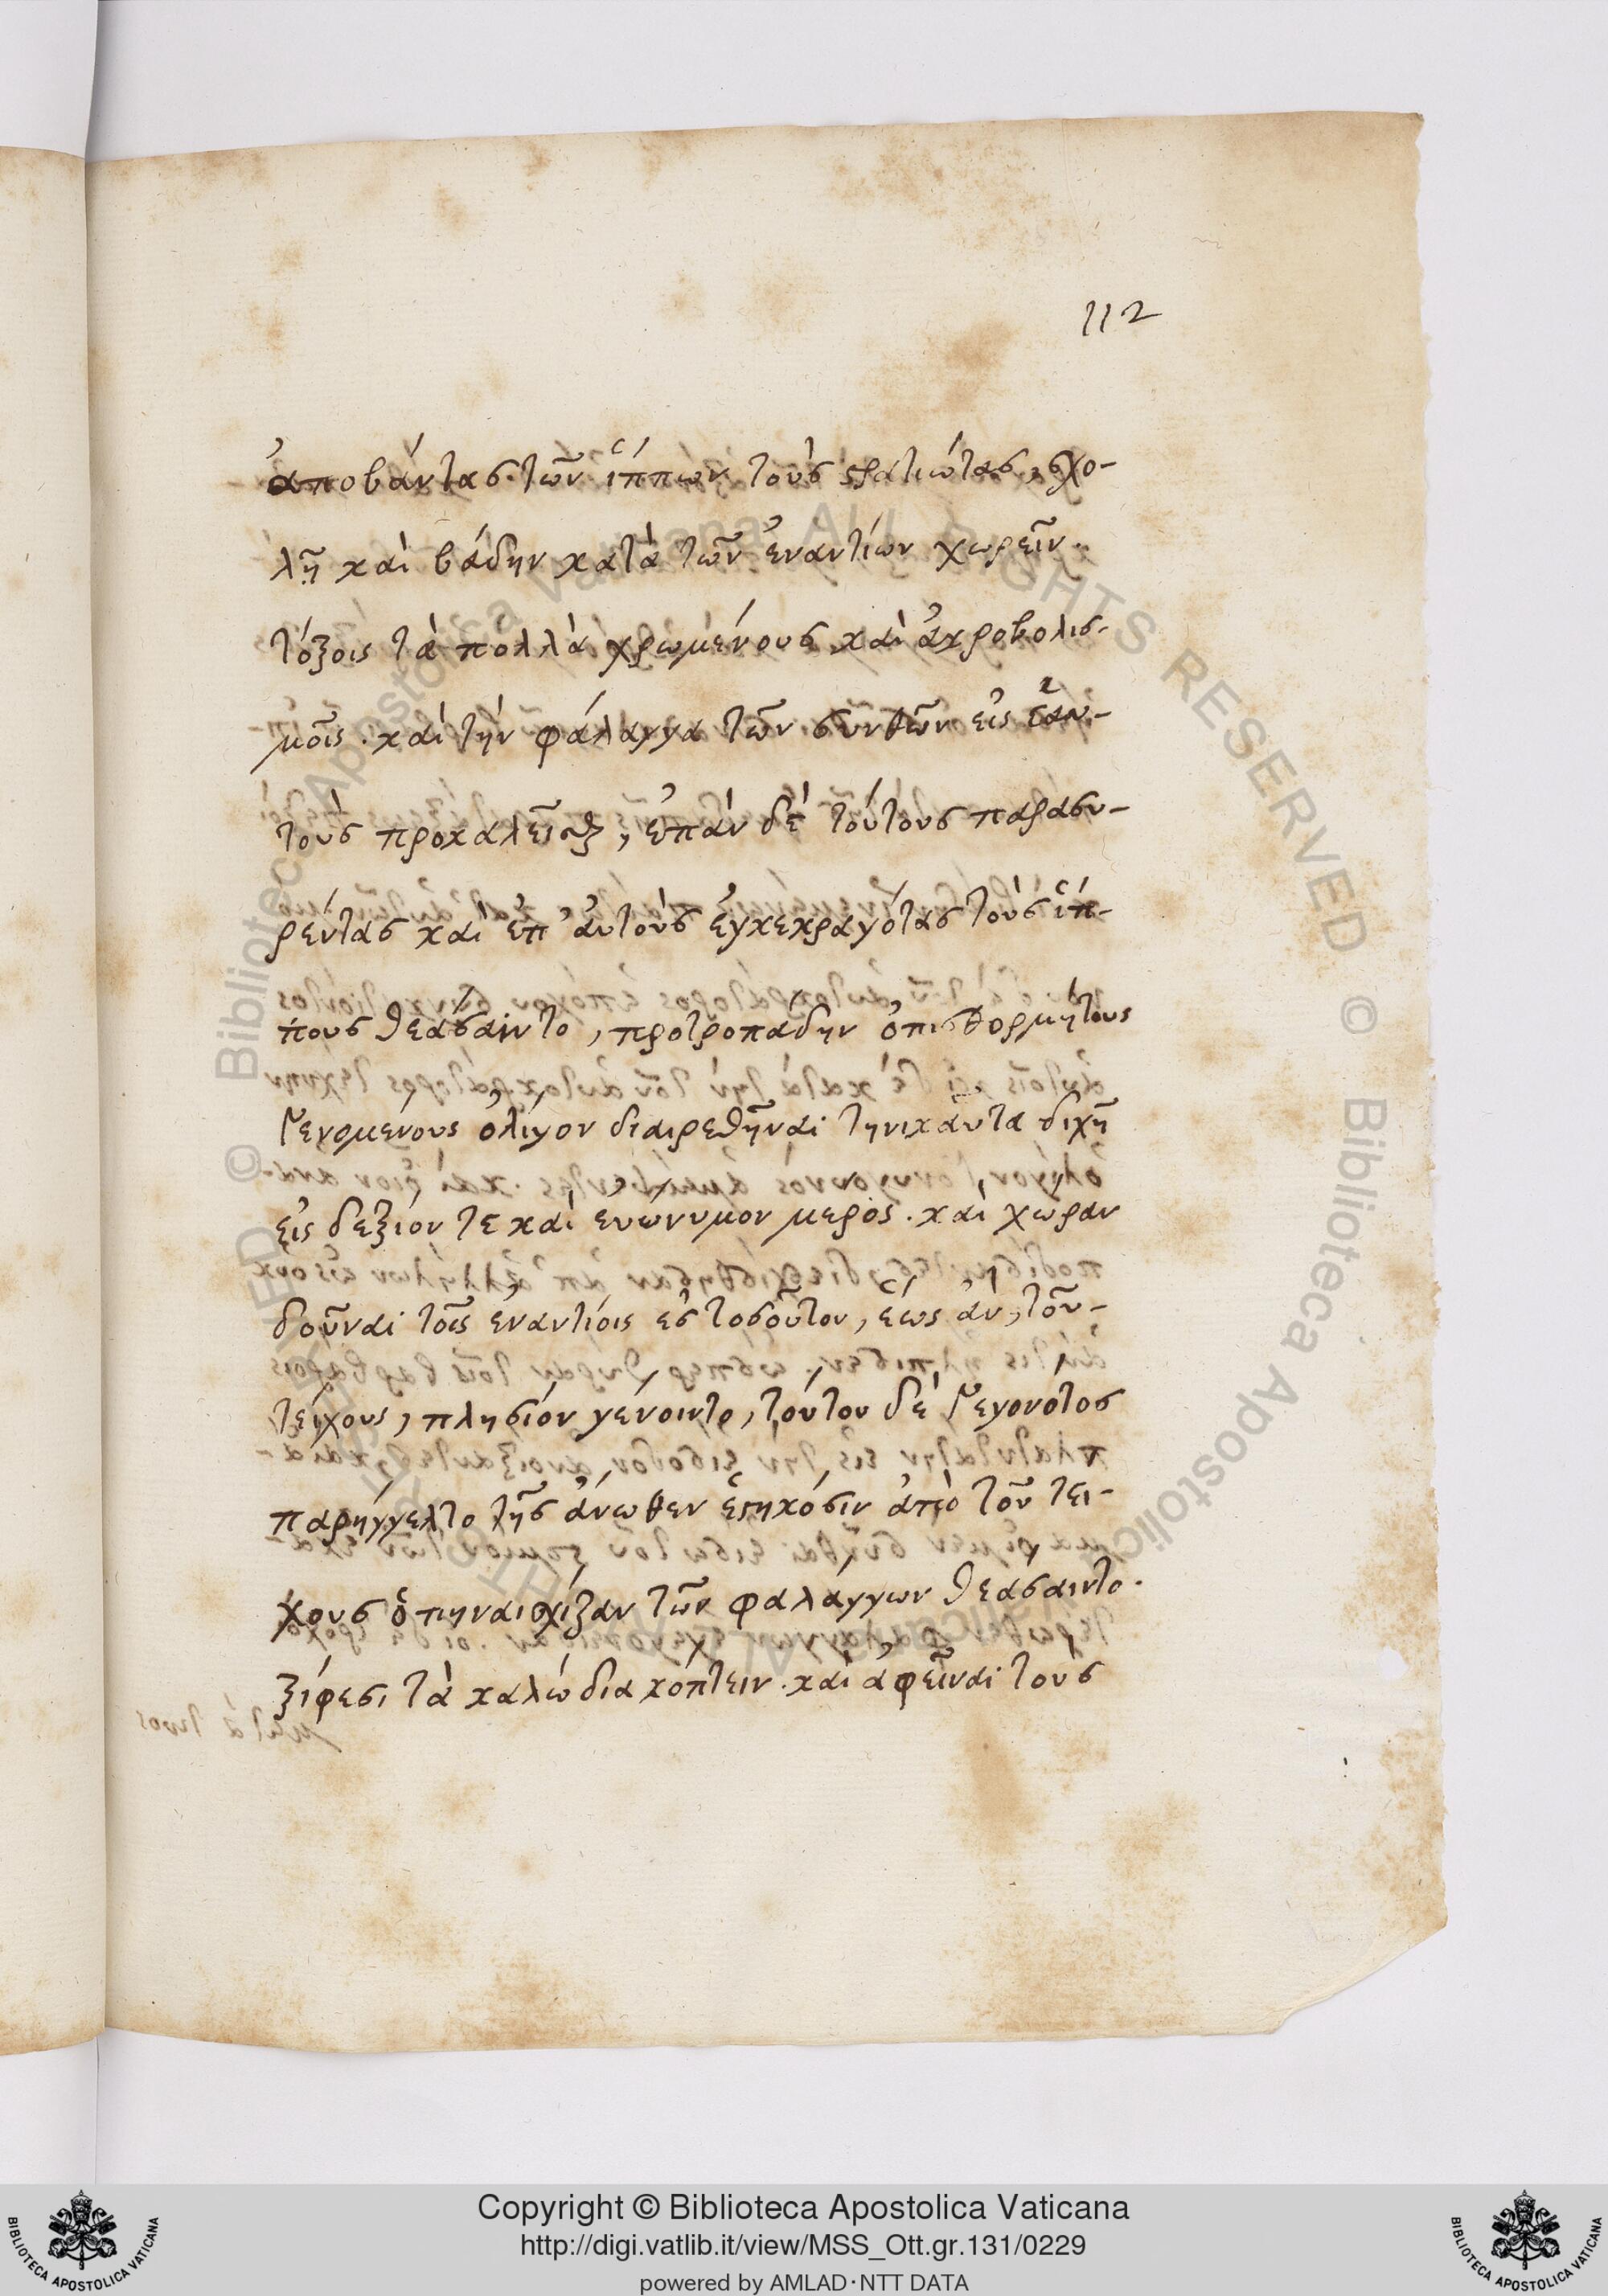 112
ἀποβάντας τῶν ἵππων τοὺς στρατιώτας, σχο-
λῇ καὶ βάδην κατὰ τῶν ἐναντίων χωρεῖν.
τόξοις τὰ πολλὰ χρωμένους καὶ ἀκροβολισ-
μοῖς. καὶ τὴν φάλαγγα τῶν εἰς ἑαυ-
τοὺς προκαλεῖσθαι, ἐπὰν δὲ τούτους παρασυ-
ρέντας καὶ ἐπ' αὐτοὺς ἐγκεκραγότας τοὺς ἵπ-
πους θεάσαιντο, προτροπάδην ὀπισθορμήτους
γενομένους ὀλίγον διαιρεθῆναι τηνικαῦτα διχῇ
εἰς δεξιόν τε καὶ εὐώνυμον μέρος. καὶ χώραν
δοῦναι τοῖς ἐναντίοις ἐς τοσοῦτον, ἕως ἂν, τοῦ
τείχους, πλησίον γένοιντο, τούτου δὲ γεγονότος
παρήγγελτο τῆς ἄνωθεν ἑστηκόσιν ἀπὸ τοῦ τεί-
χους σχίζαν τῶν φαλάγγων θεάσαιντο.
ξίφεσι τὰ καλώδια κόπτειν. καὶ ἀφεῖναι τοὺς
Copyright © Biblioteca Apostolica Vaticana
http://digi.vatlib.it/view/MSS_Ott.gr.131/0229
powered by AMLAD · NTT DATA
BIBLIOTECA APOSTOLICA VATICANA
BIBLIOTECA APOSTOLICA VATICANA